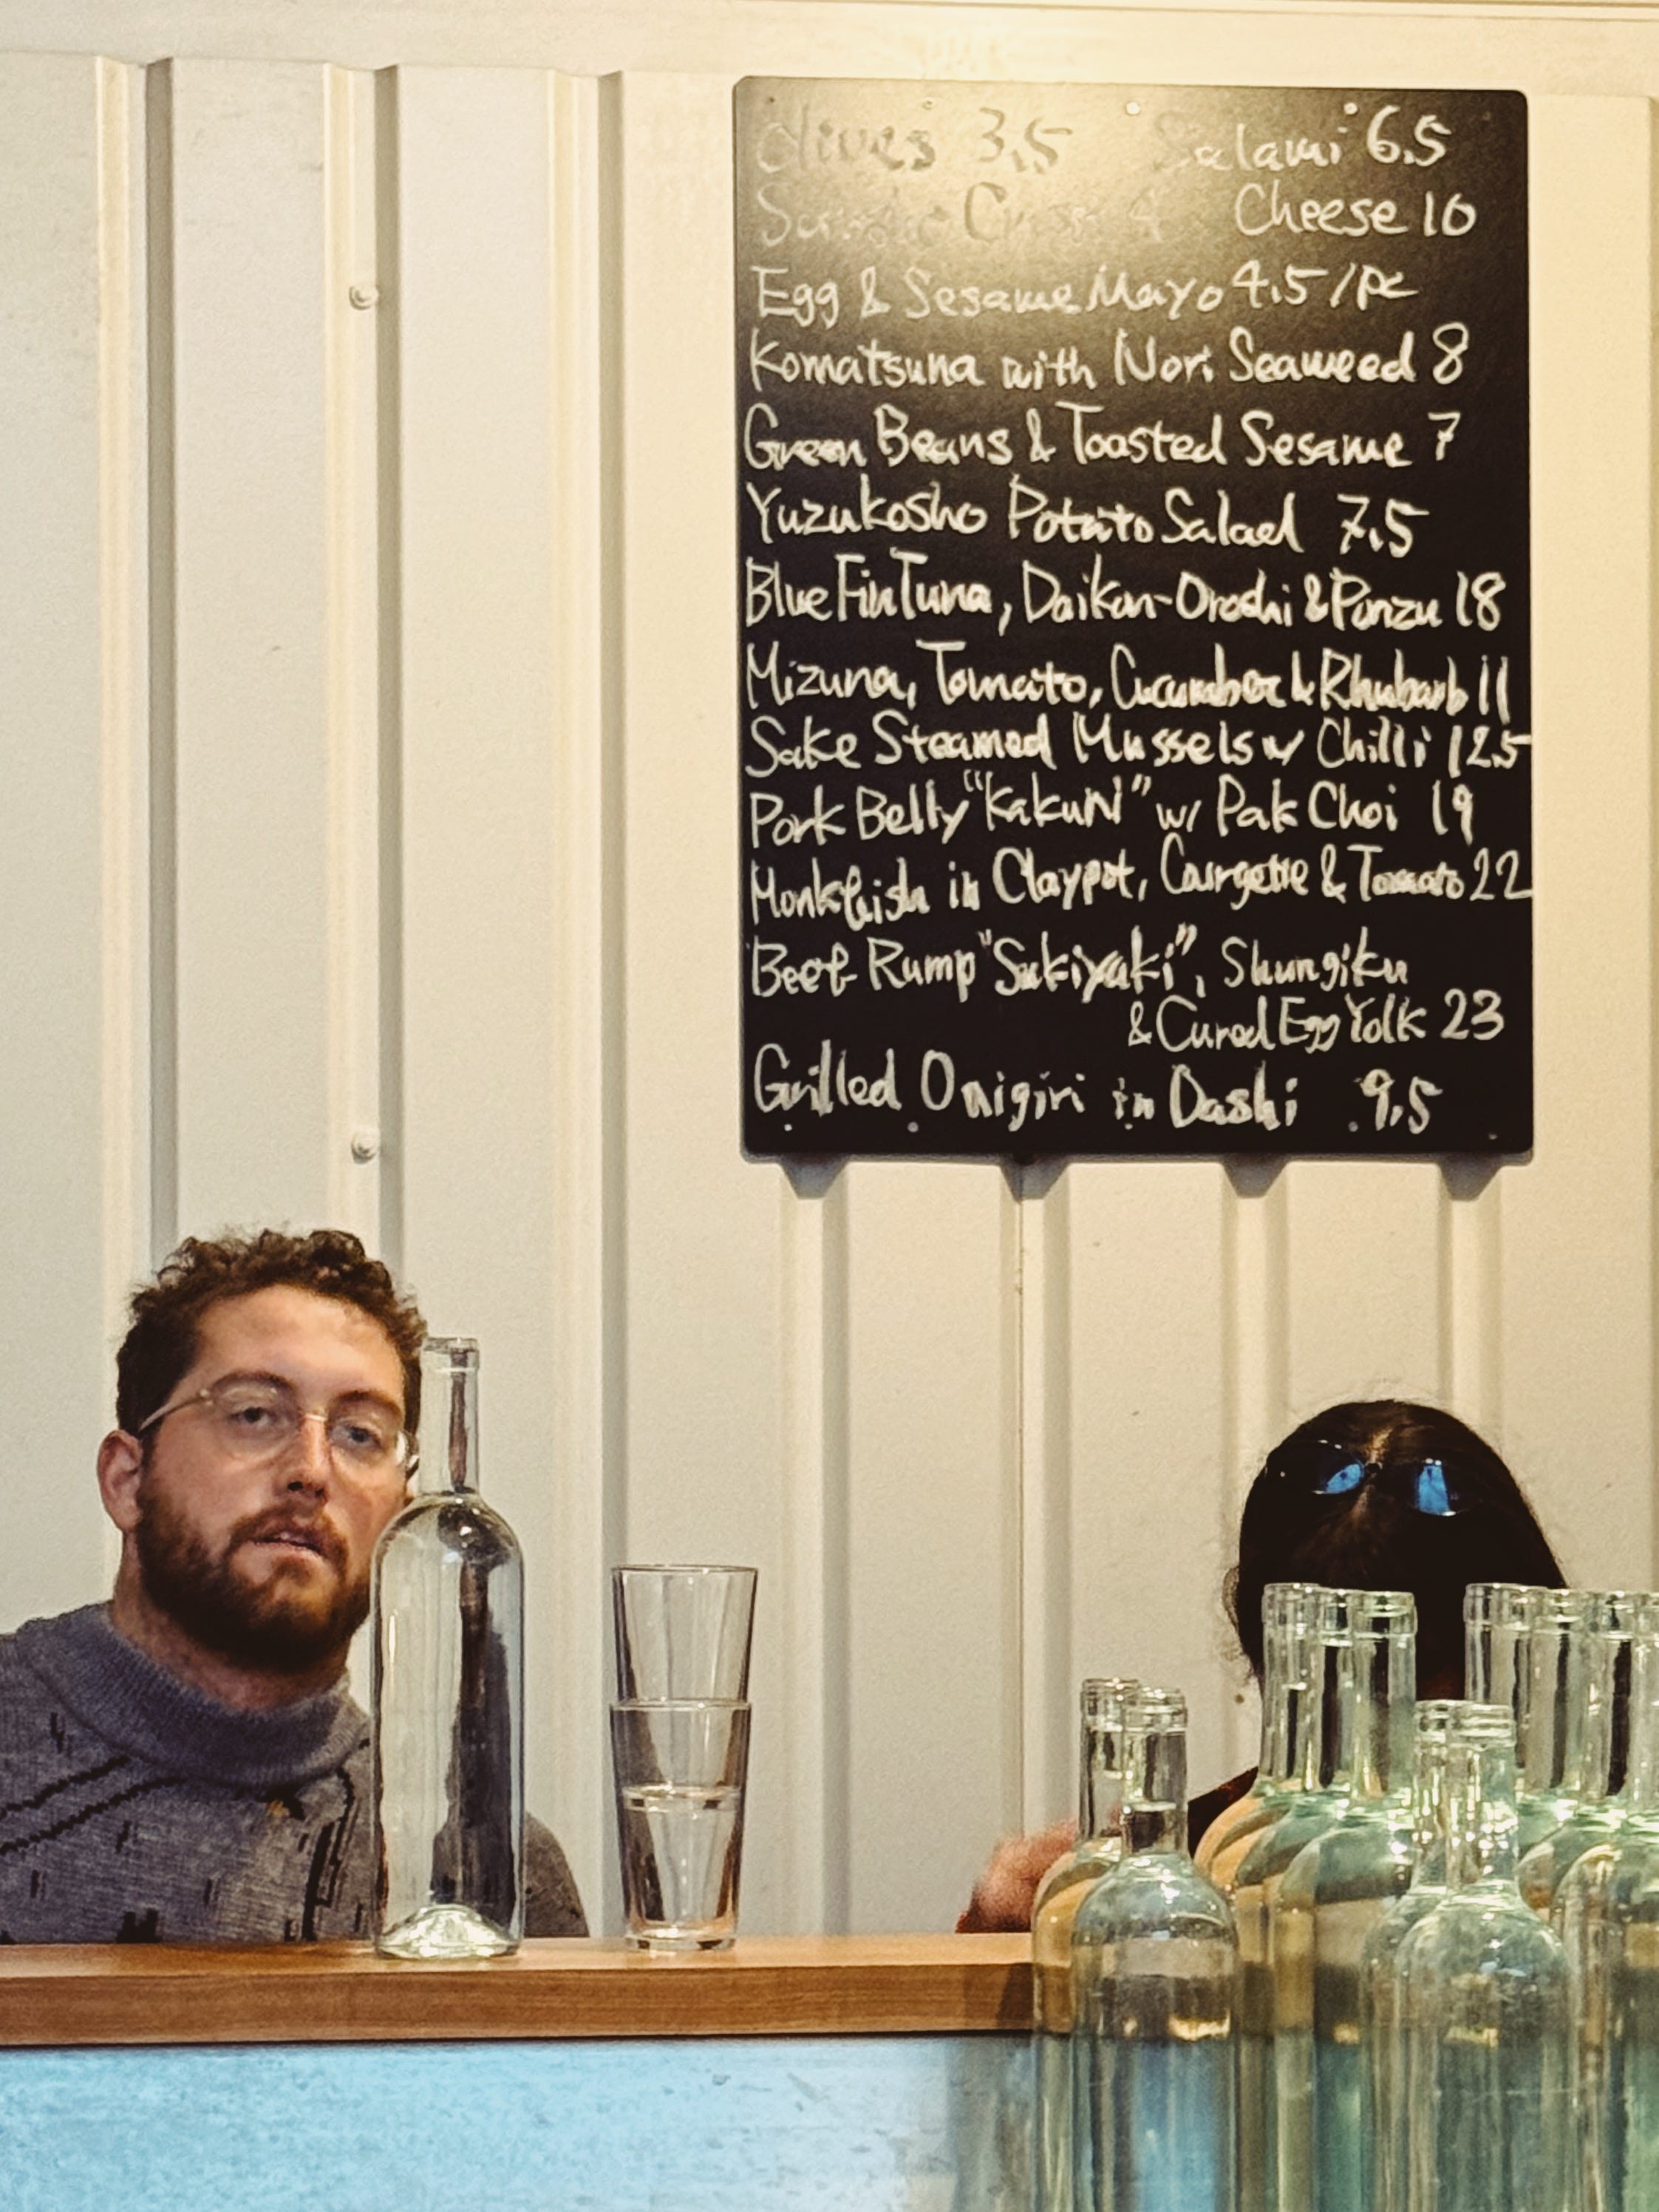 Olives 3.5 Salami 6.5
Cheese 10
Egg & Sesame Mayo 4.5/pc
Komatsuna with Nori Seaweed 8
Green Beans & Toasted Sesame 7
Yuzukosho Potato Salad 7.5
Blue Fin Tuna, Daikon-Oroshi & Ponzu 18
Mizuna, Tomato, Cucumber & Rhubarb 11
Sake Steamed Mussels w/ Chilli 12.5
Pork Belly "Kakuni" w/ Pak Choi 19
Monkfish in Claypot, Courgette & Tomato 22
Beef Rump "Sukiyaki", Shungiku
& Cured Egg Yolk 23
Grilled Onigiri in Dashi 9.5